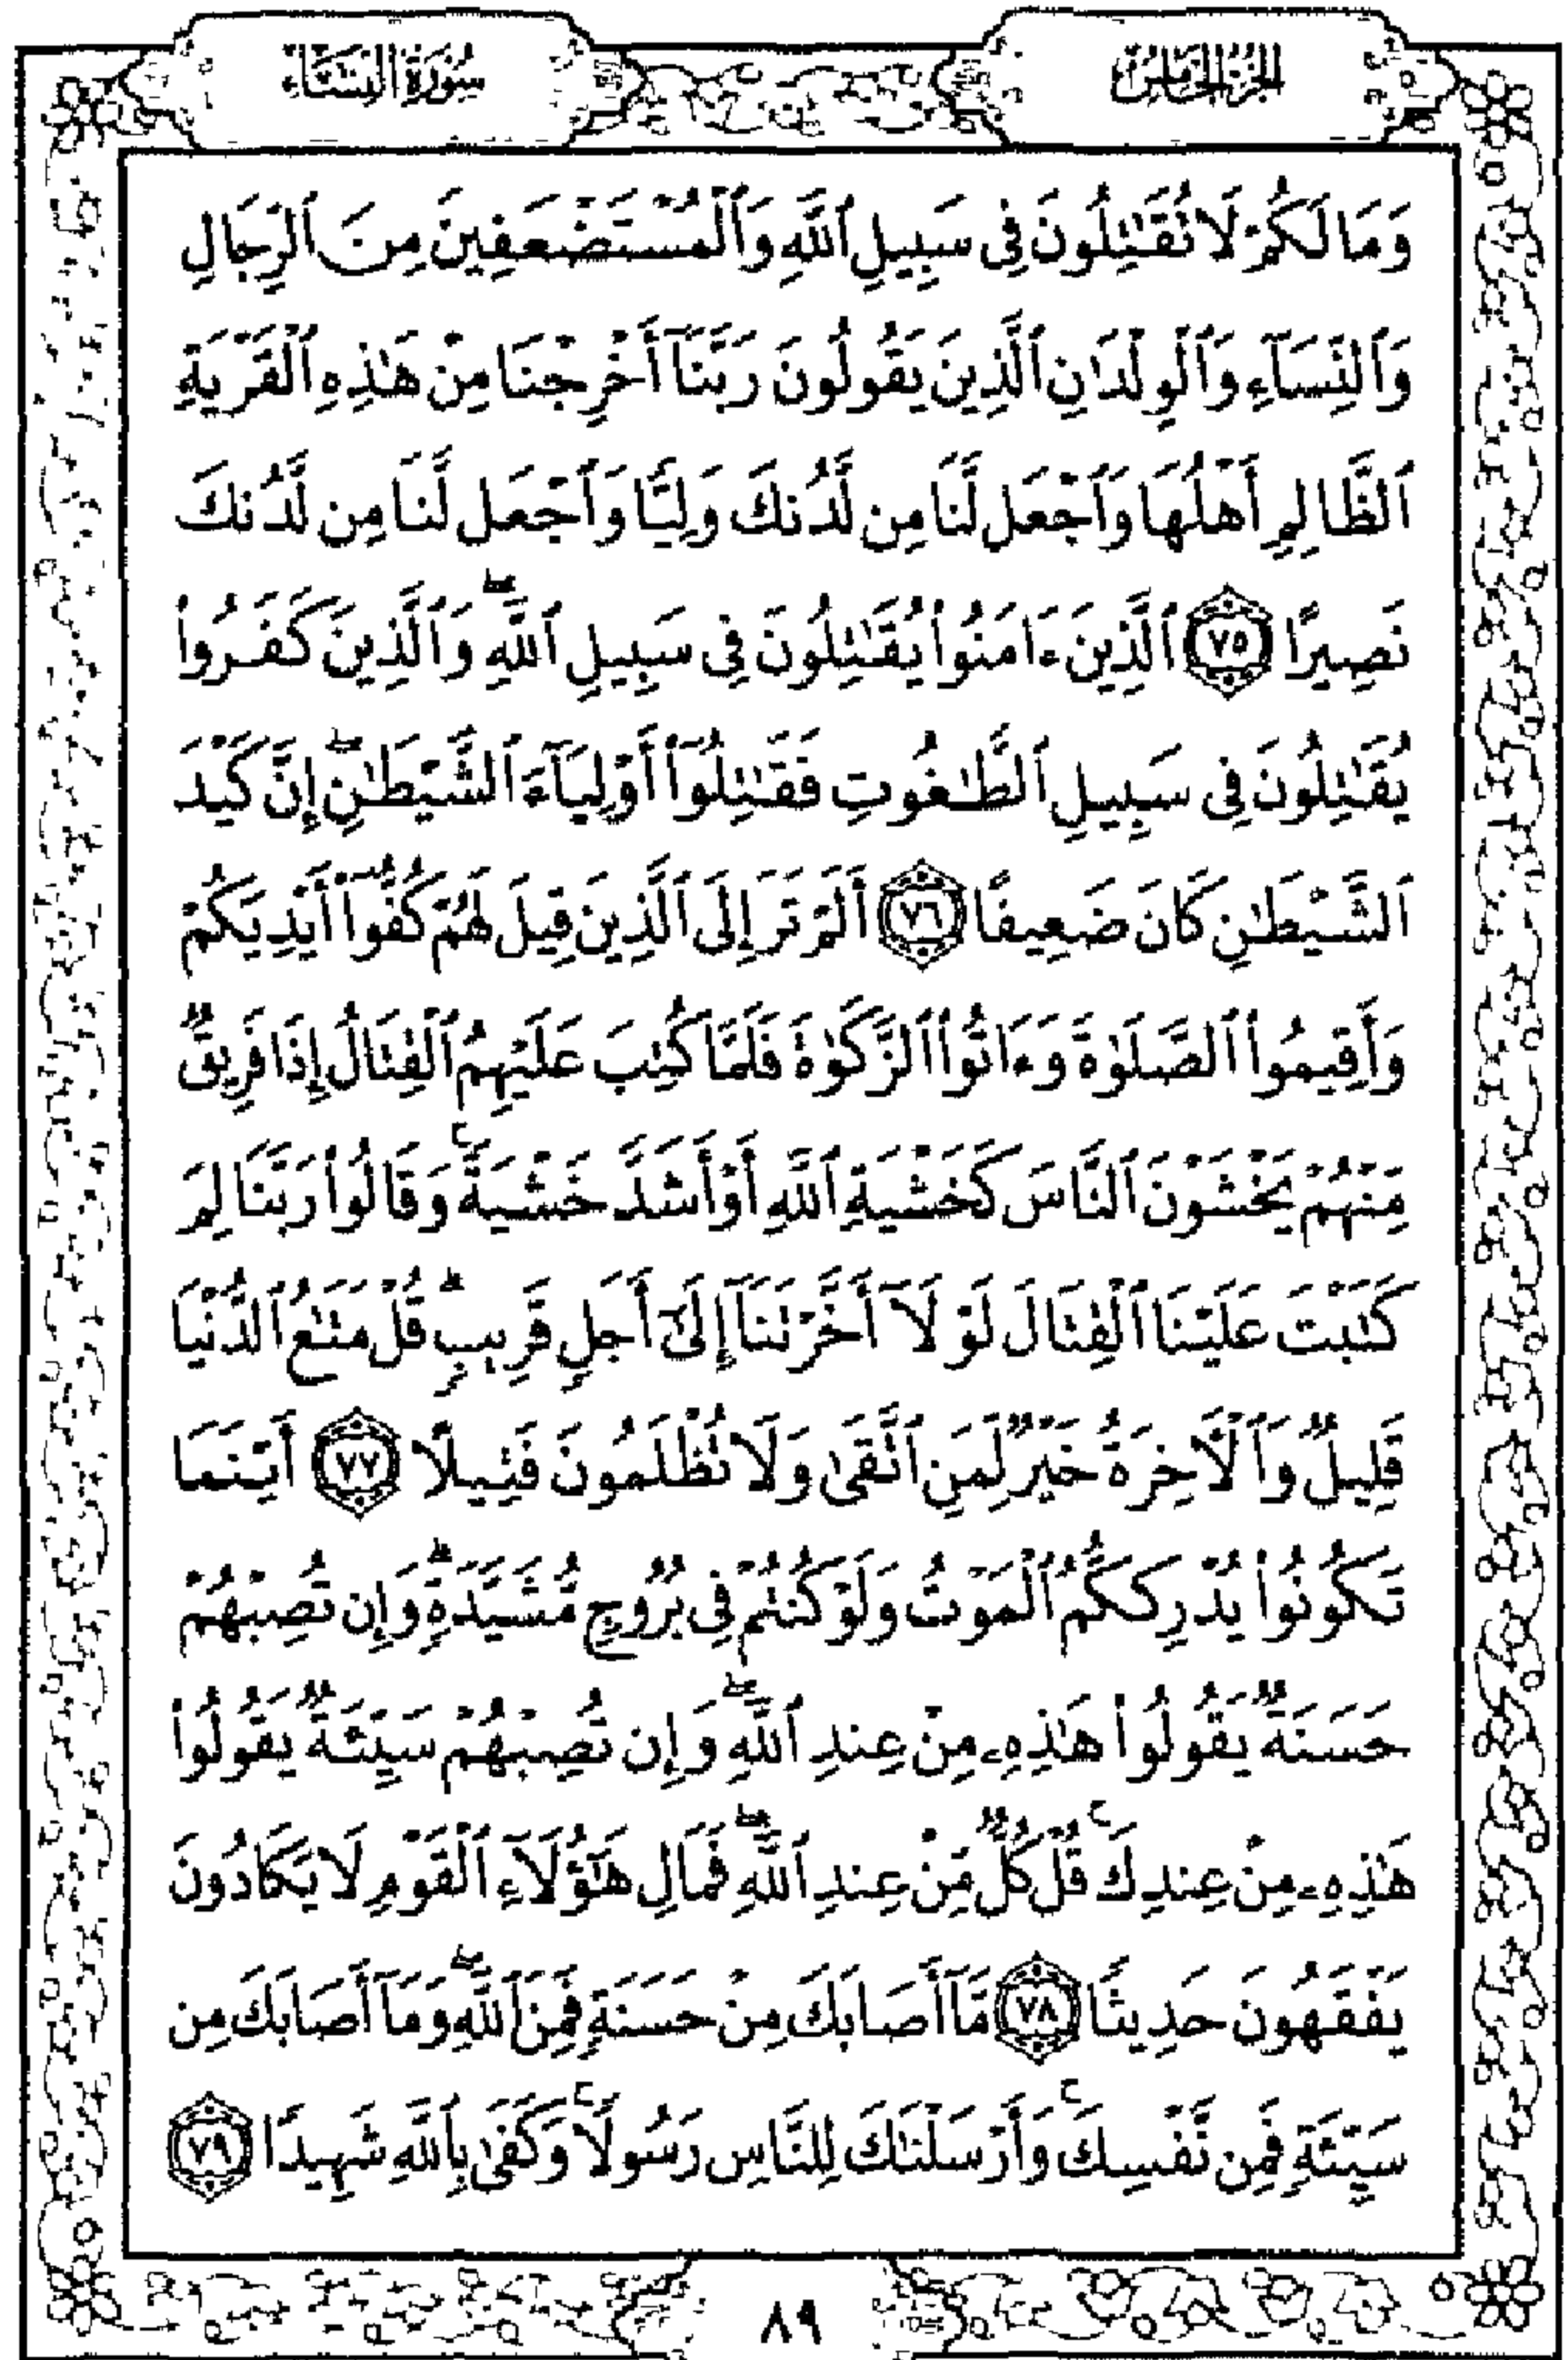 الجزء الخامس
سورة النساء
وَمَا لَكُمْ لَا تُقَٰتِلُونَ فِى سَبِيلِ ٱللَّهِ وَٱلْمُسْتَضْعَفِينَ مِنَ ٱلرِّجَالِ
وَٱلنِّسَآءِ وَٱلْوِلْدَٰنِ ٱلَّذِينَ يَقُولُونَ رَبَّنَآ أَخْرِجْنَا مِنْ هَٰذِهِ ٱلْقَرْيَةِ
ٱلظَّالِمِ أَهْلُهَا وَٱجْعَل لَّنَا مِن لَّدُنكَ وَلِيًّا وَٱجْعَل لَّنَا مِن لَّدُنكَ
نَصِيرًا ٧٥ ٱلَّذِينَ ءَامَنُوا۟ يُقَٰتِلُونَ فِى سَبِيلِ ٱللَّهِ ۖ وَٱلَّذِينَ كَفَرُوا۟
يُقَٰتِلُونَ فِى سَبِيلِ ٱلطَّٰغُوتِ فَقَٰتِلُوٓا۟ أَوْلِيَآءَ ٱلشَّيْطَٰنِ ۖ إِنَّ كَيْدَ
ٱلشَّيْطَٰنِ كَانَ ضَعِيفًا ٧٦ أَلَمْ تَرَ إِلَى ٱلَّذِينَ قِيلَ لَهُمْ كُفُّوٓا۟ أَيْدِيَكُمْ
وَأَقِيمُوا۟ ٱلصَّلَوٰةَ وَءَاتُوا۟ ٱلزَّكَوٰةَ فَلَمَّا كُتِبَ عَلَيْهِمُ ٱلْقِتَالُ إِذَا فَرِيقٌ
مِّنْهُمْ يَخْشَوْنَ ٱلنَّاسَ كَخَشْيَةِ ٱللَّهِ أَوْ أَشَدَّ خَشْيَةً ۚ وَقَالُوا۟ رَبَّنَا لِمَ
كَتَبْتَ عَلَيْنَا ٱلْقِتَالَ لَوْلَآ أَخَّرْتَنَآ إِلَىٰٓ أَجَلٍ قَرِيبٍ ۗ قُلْ مَتَٰعُ ٱلدُّنْيَا
قَلِيلٌ وَٱلْـَٔاخِرَةُ خَيْرٌ لِّمَنِ ٱتَّقَىٰ وَلَا تُظْلَمُونَ فَتِيلًا ٧٧ أَيْنَمَا
تَكُونُوا۟ يُدْرِككُّمُ ٱلْمَوْتُ وَلَوْ كُنتُمْ فِى بُرُوجٍ مُّشَيَّدَةٍ ۗ وَإِن تُصِبْهُمْ
حَسَنَةٌ يَقُولُوا۟ هَٰذِهِۦ مِنْ عِندِ ٱللَّهِ ۖ وَإِن تُصِبْهُمْ سَيِّئَةٌ يَقُولُوا۟
هَٰذِهِۦ مِنْ عِندِكَ ۚ قُلْ كُلٌّ مِّنْ عِندِ ٱللَّهِ ۖ فَمَالِ هَٰٓؤُلَآءِ ٱلْقَوْمِ لَا يَكَادُونَ
يَفْقَهُونَ حَدِيثًا ٧٨ مَّآ أَصَابَكَ مِنْ حَسَنَةٍ فَمِنَ ٱللَّهِ ۖ وَمَآ أَصَابَكَ مِن
سَيِّئَةٍ فَمِن نَّفْسِكَ ۚ وَأَرْسَلْنَٰكَ لِلنَّاسِ رَسُولًا ۚ وَكَفَىٰ بِٱللَّهِ شَهِيدًا ٧٩
٨٩